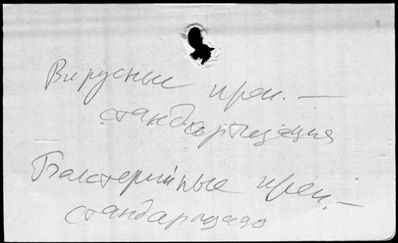 Вирусные преп. —
стандартизация
Бактерийные преп. —
стандартизац